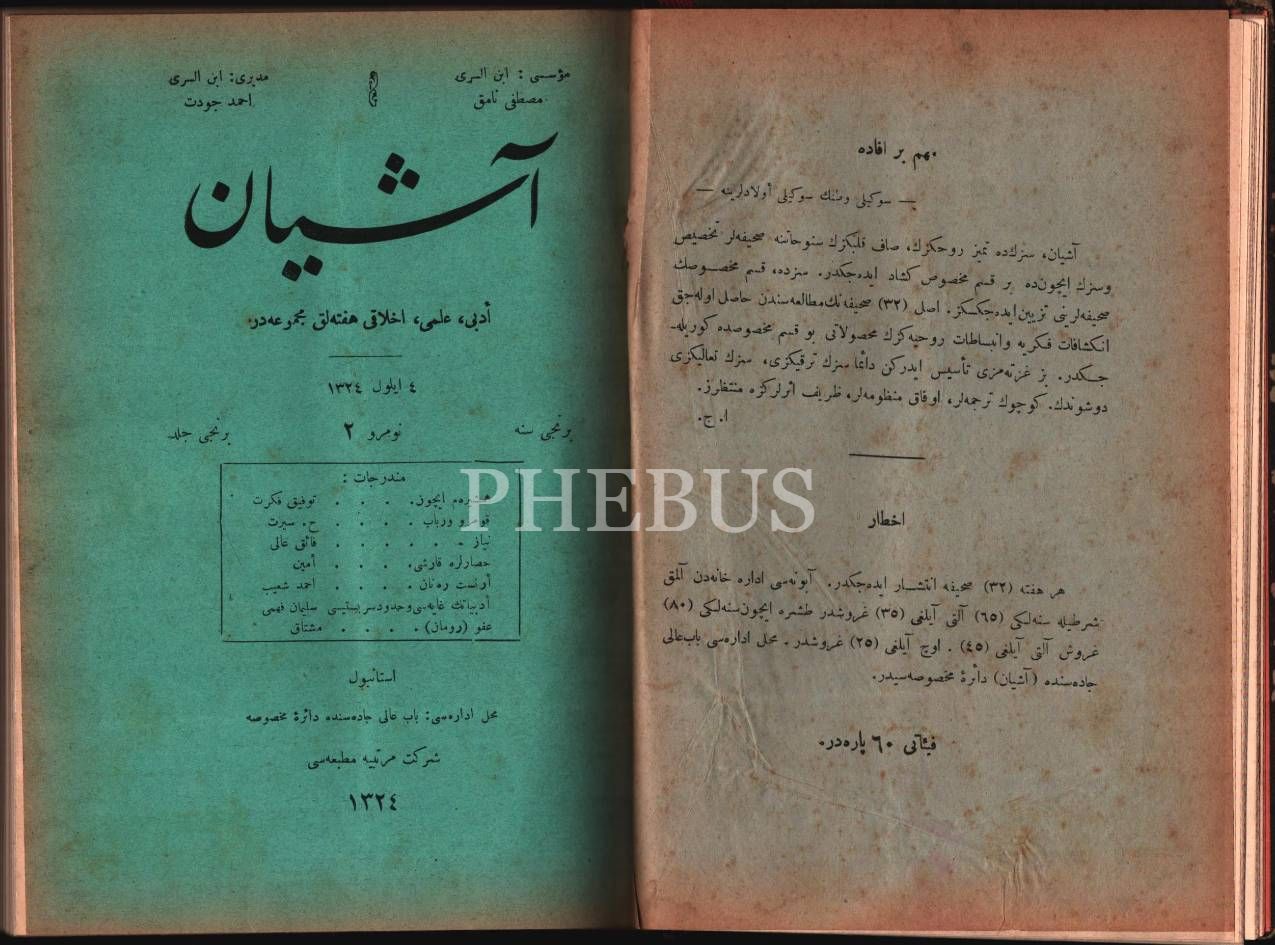 مؤسسی : ابن السری
مصطفی نامق
مدیری: ابن السری
احمد جودت
آشیان
أدبی، علمی، اخلاقی هفته‌لق مجموعه‌در.
٤ ایلول ١٣٢٤
برنجی سنه
نومرو ٢
برنجی جلد
مندرجات :
همشیره‌م ایچون. . . . توفیق فکرت
ورباب . . . . ح. سیرت
نیاز . . . . . . فائق عالی
حصارلره قارشی. . . . أمین
أرنست ره‌نان. . . . احمد شعیب
أدبیاتك غایه‌سی وحدود سربستیسی سلیمان فهمی
عفو (رومان). . . . مشتاق
استانبول
محل اداره‌سی: باب عالی جاده‌سنده دائرۀ مخصوصه
شرکت مرتبیه مطبعه‌سی
١٣٢٤
مهم بر افاده
— سوکیلی وطنك سوکیلی أولادلرینه —
آشیان، سزك‌ده تمیز روحکزك، صاف قلبکزك سنوحاتنه صحیفه‌لر تخصیص
وسزك ایچون‌ده بر قسم مخصوص کشاد ایده‌جکدر. سزده، قسم مخصوصك
صحیفه‌لرینی تزیین ایده‌جکسکز. اصل (٣٢) صحیفه‌نك مطالعه‌سندن حاصل اوله‌جق
انکشافات فکریه وانبساطات روحیه‌کزك محصولاتی بو قسم مخصوصده کوریله‌-
جکدر. بز غزته‌مزی تأسیس ایدرکن دائما سزك ترقیکزی، سزك تعالیکزی
دوشوندك. کوچوك ترجمه‌لر، اوفاق منظومه‌لر، ظریف اثرلرکزه منتظرز.
ا. ج.
اخطار
هر هفته (٣٢) صحیفه انتشار ایده‌جکدر. آبونه‌سی اداره خانه‌دن آلمق
شرطیله سنه‌لکی (٦٥) آلتی آیلغی (٣٥) غروشدر طشره ایچون سنه‌لکی (٨٠)
غروش آلتی آیلغی (٤٥) . اوچ آیلغی (٢٥) غروشدر . محل اداره‌سی باب عالی
جاده‌سنده (آشیان) دائرۀ مخصوصه‌سیدر.
فیئاتی ٦٠ پاره‌در.
PHEBUS